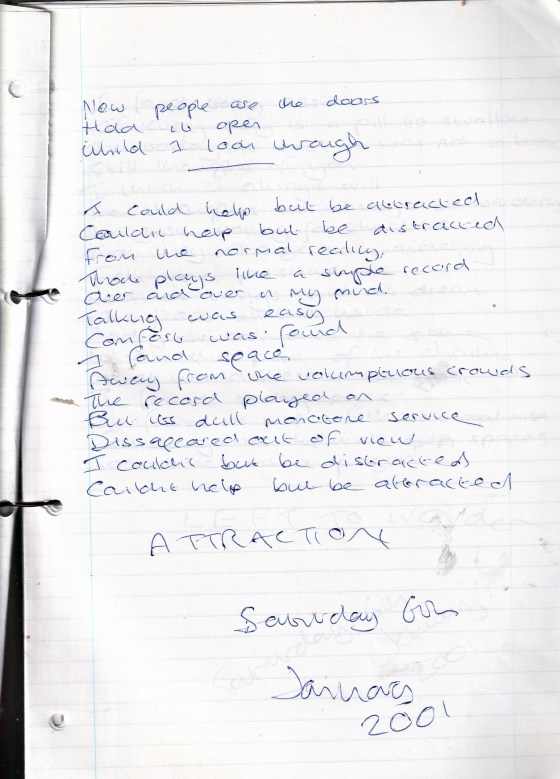 New people are the doors
Hold it open
While I look through
I could help but be attracted
Couldn't help but be distracted
From the normal reality,
That plays like a simple record
Over and over in my mind.
Talking was easy
Comfort was found
I found space
Away from the volumptuous crowds
The record played on
But its dull monotone service
Dissapeared out of view
I couldn't but be distracted
Couldn't help but be attracted
ATTRACTION
Saturday 6th
January
2001